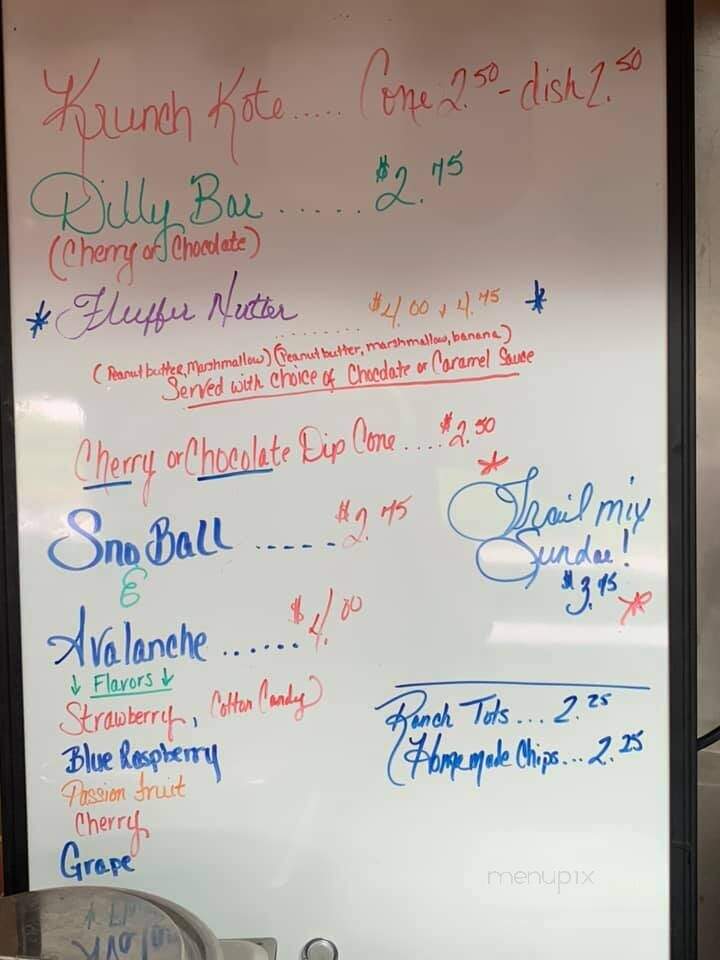 Krunch Kote..... Cone 2.50 - dish 2.50
Dilly Bar ...... $2.75
(Cherry or Chocolate)
* Fluffer Nutter ......... $4.00 + 4.75 *
(Peanut butter, Marshmallow) (Peanut butter, marshmallow, banana)
Served with choice of Chocolate or Caramel Sauce
Cherry or Chocolate Dip Cone .... $2.50
Sno Ball ...... $2.75
&
Avalanche ...... $4.00
↓ Flavors ↓
Strawberry, Cotton Candy
Blue Raspberry
Passion fruit
Cherry
Grape
* Trail mix
Sundae!
$3.95 *
Ranch Tots... 2.25
Homemade Chips... 2.25
menupix